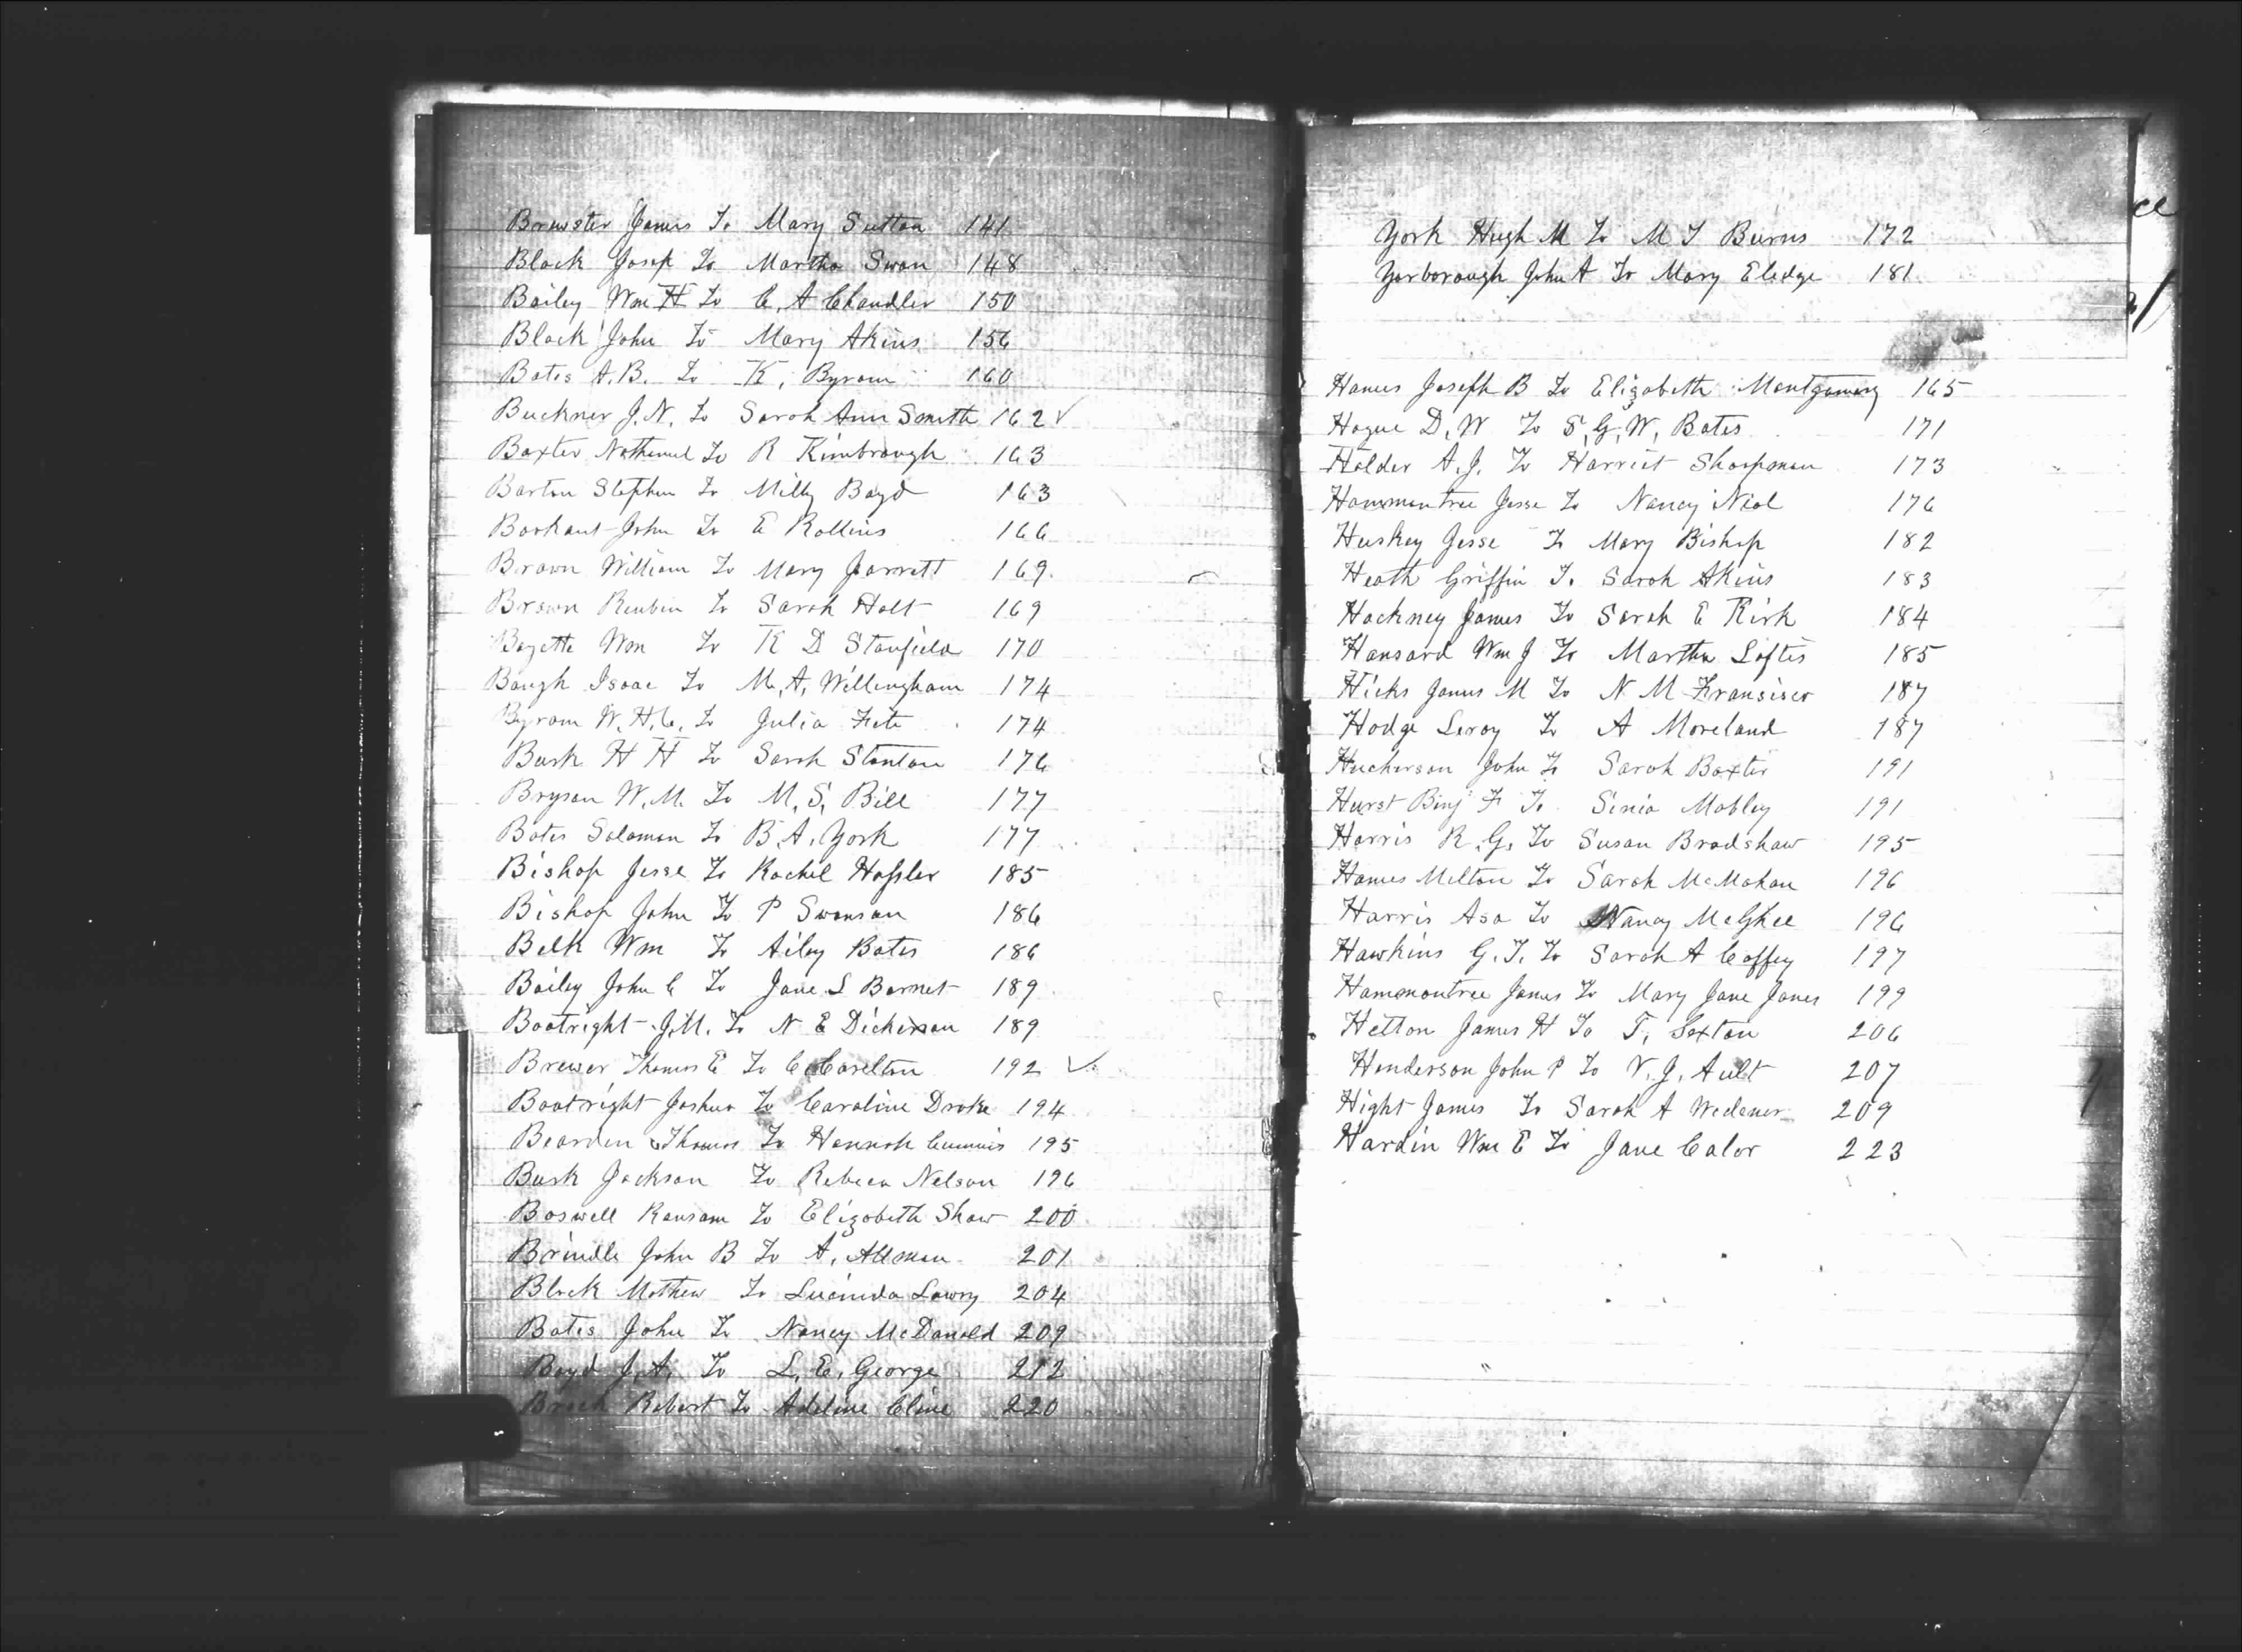 Brewster James To Mary Sutton 141
Black Josep To Martha Swan 148
Bailey Wm H To C. A Chandler 150
Black John To Mary Akins 156
Bates A. B. To K, Byrom 160
Buckner J. N. To Sarah Ann Smith 162 ✓
Baxter Nathaniel To R Kimbrough 163
Barton Stephen To Milly Boyd 163
Borhaut John To E Rollins 166
Brown William To Mary Jarrett 169.
Brown Reubin To Sarah Holt 169
Wm To K D Stanfield 170
Baugh Isaac To M, A, Willingham 174
Byrom W. H. C. To Julia Fite 174
Bush H H To Sarah Stanton 176
Bryson W. M. To M, S, Bill 177
Bates Solomon To B. A. York 177
Bishop Jesse To Rachel Hassler 185
Bishop John To P Swanson 186
Belk Wm To Ailey Bates 186
Bailey John C To Jane L Barnet 189
Boatright J. M. To N E Dickenson 189
Brewer Thomas E To C Carelton 192 ✓
Boatright Joshua To Caroline Drake 194
Bearden Thomas To Hannah Cummis 195
Bush Jackson To Rebeca Nelson 196
Boswell Ransom To Elizabeth Shaw 200
Brindle John B To A, Allman 201
Black Mathew To Lucinda Lowry 204
Bates John To Nancy McDonald 209
Boyd J. A. To L. E. George 212
Brock Robert To Adeline Cline 220
York Hugh M To M J Burns 172
Yarborough John A To Mary Eledge 181
Hames Joseph B To Elizabeth Montgomery 165
Hogue D, W To S, G, W, Bates 171
Holder A. J. To Harriet Shoopman 173
Hammontree Jesse To Nancy Niol 176
Huskey Jesse To Mary Bishop 182
Heath Griffin To Sarah Akins 183
Hackney James To Sarah E Kirk 184
Hansard Wm J To Martha Loftis 185
Hicks James M To N M Fransisco 187
Hodge Leroy To A Moreland 187
Huckerson John To Sarah Baxter 191
Hurst Binj F To Sinia Mobley 191
Harris R. G. To Susan Bradshaw 195
Hames Milton To Sarah McMahan 196
Harris Asa To Nancy McGhee 196
Hawkins G. T. To Sarah A Coffey 197
Hammontree James To Mary Jane Jones 199
Helton James H To T, Sexton 206
Henderson John P To V. J. Ault 207
Hight James To Sarah A Widener 209
Hardin Wm E To Jane Calor 223